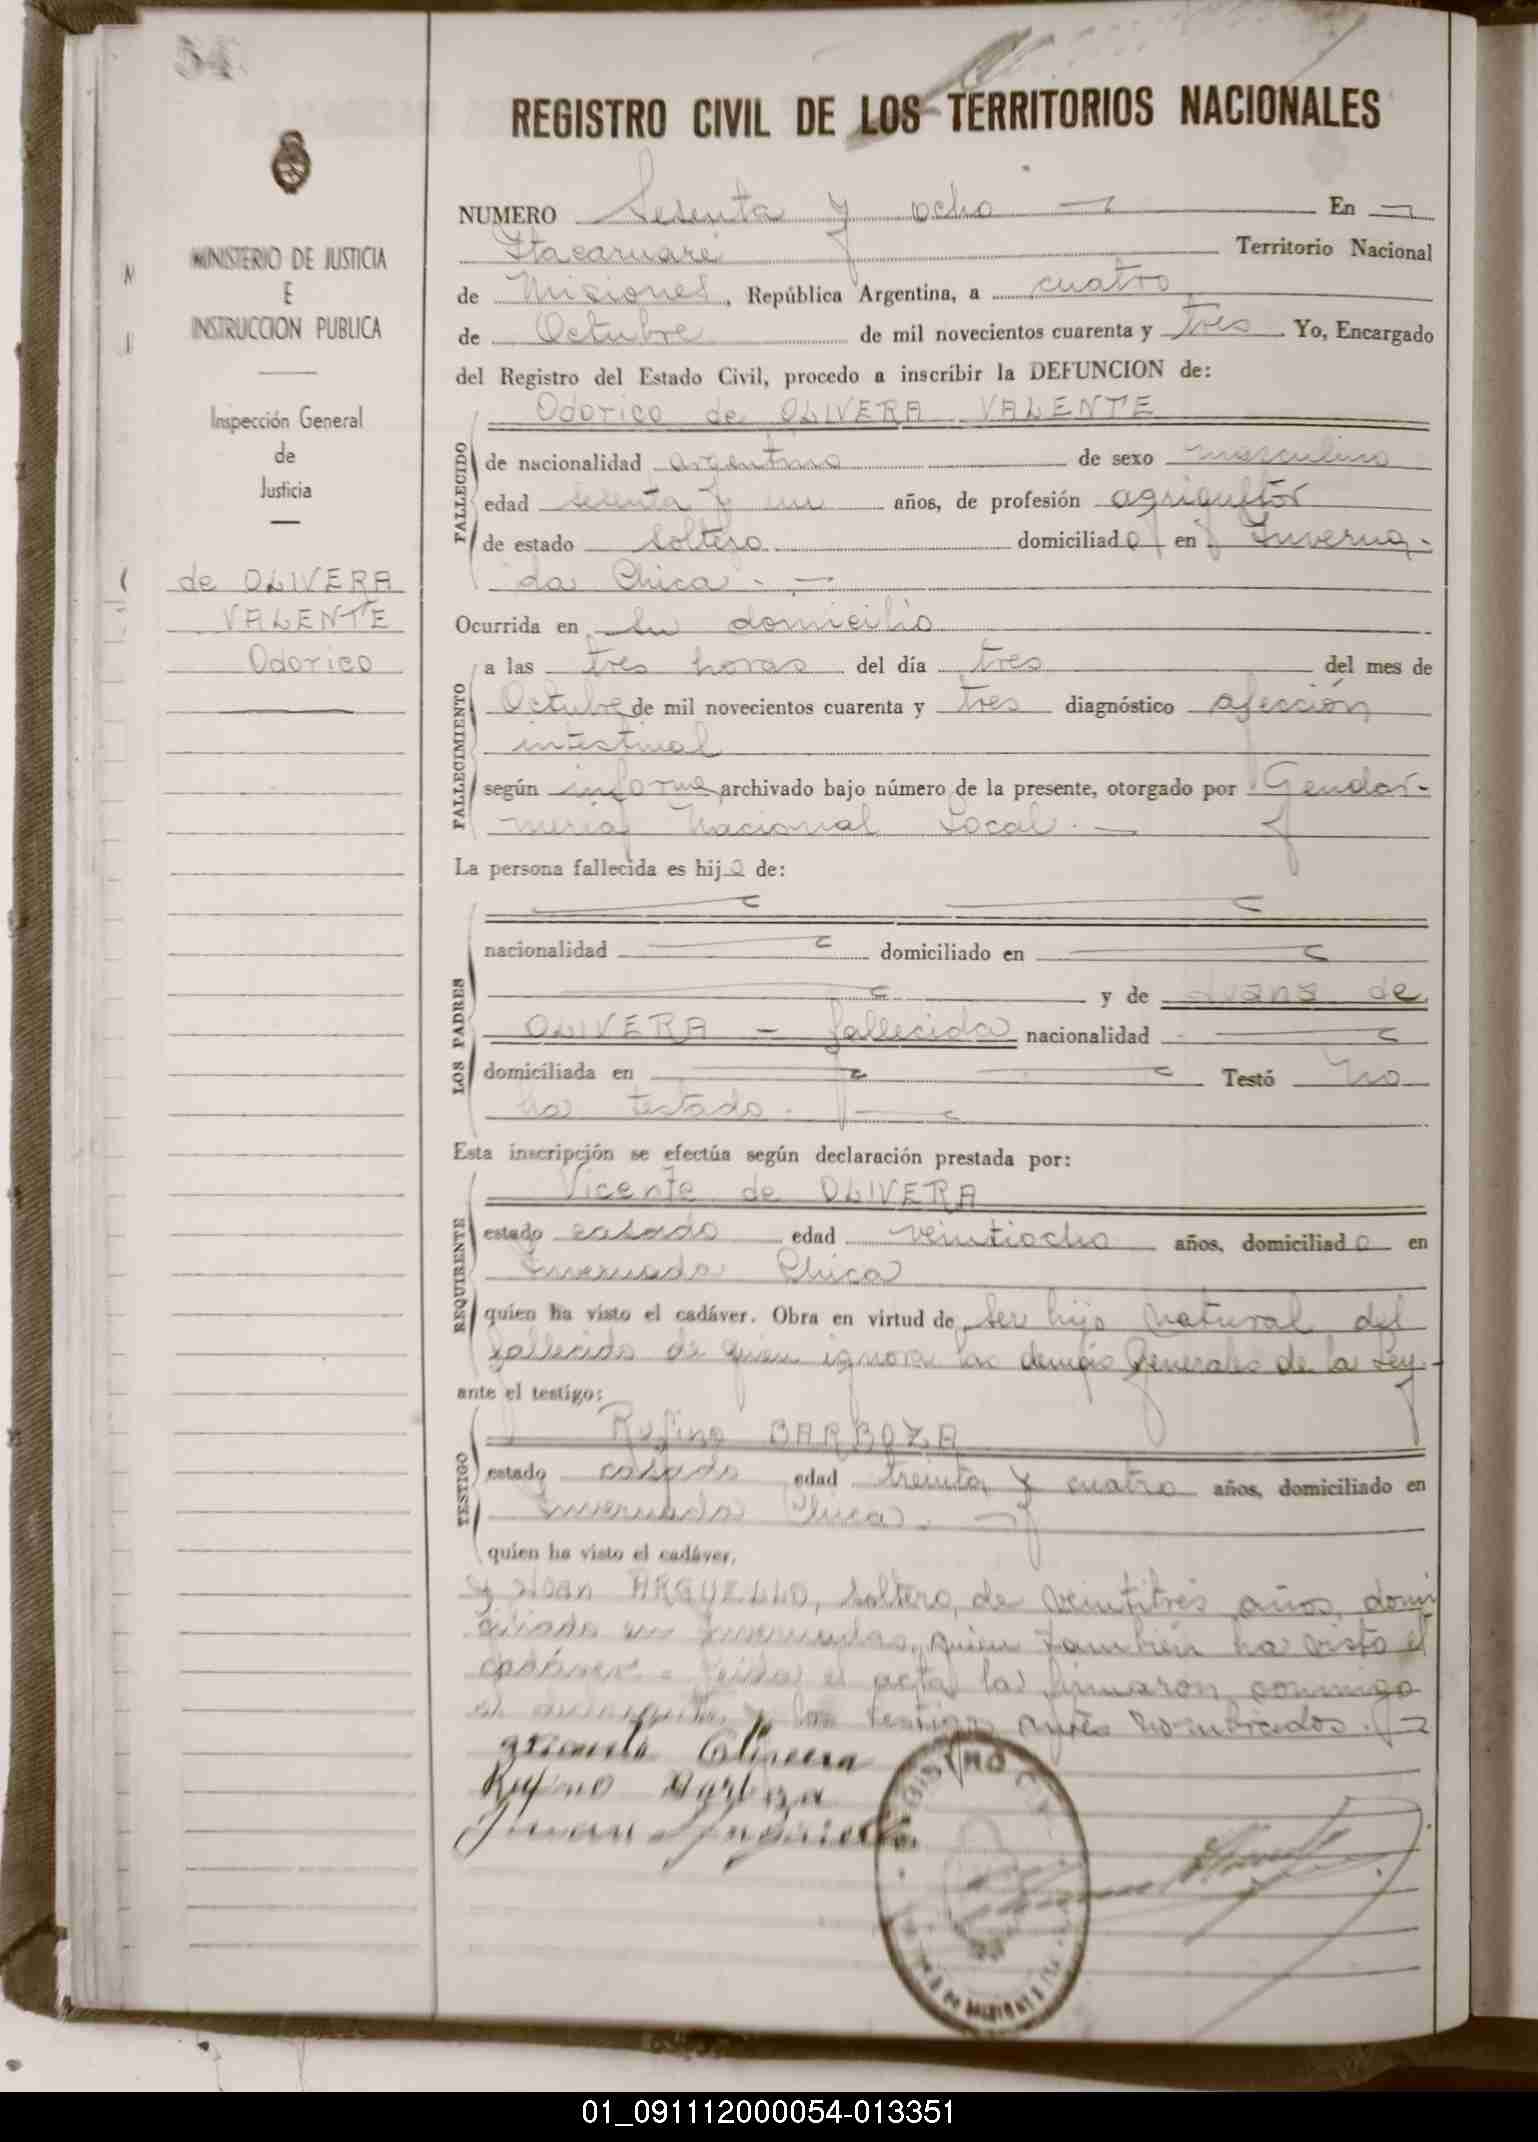 54
REGISTRO CIVIL DE LOS TERRITORIOS NACIONALES
MINISTERIO DE JUSTICIA
E
INSTRUCCION PUBLICA
Inspección General
de
Justicia
de OLIVERA
VALENTE
Odorico
NUMERO Sesenta y ocho En
Itacaruaré Territorio Nacional
de Misiones, República Argentina, a cuatro
de Octubre de mil novecientos cuarenta y tres Yo, Encargado
del Registro del Estado Civil, procedo a inscribir la DEFUNCION de:
Odorico de OLIVERA VALENTE
FALLECIDO
de nacionalidad argentino de sexo masculino
edad sesenta y un años, de profesión agricultor
de estado soltero domiciliado en Inverna-
da Chica.
Ocurrida en su domicilio
FALLECIMIENTO
a las tres horas del día tres del mes de
Octubre de mil novecientos cuarenta y tres diagnóstico afección
intestinal
según informe archivado bajo número de la presente, otorgado por Gendar-
mería Nacional Local.
La persona fallecida es hijo de:
LOS PADRES
nacionalidad domiciliado en
y de Juana de
OLIVERA - fallecida nacionalidad
domiciliada en Testó No
ha testado.
Esta inscripción se efectúa según declaración prestada por:
REQUIRENTE
Vicente de OLIVERA
estado casado edad veintiocho años, domiciliado en
Invernada Chica
quien ha visto el cadáver. Obra en virtud de ser hijo natural del
fallecido de quien ignora las demás Generales de la Ley.-
ante el testigo:
TESTIGO
Rufino BARBOZA
estado casado edad treinta y cuatro años, domiciliado en
Invernada Chica.
quien ha visto el cadáver.
y Juan ARGUELLO, soltero, de veintitrés años, domi
ciliado en Invernada, quien también ha visto el
cadáver. Leida el acta la firmaron conmigo
el y los testigos antes nombrados.
Olivera
Rufino Barboza
Juan
REGISTRO CIVIL
01_091112000054-013351